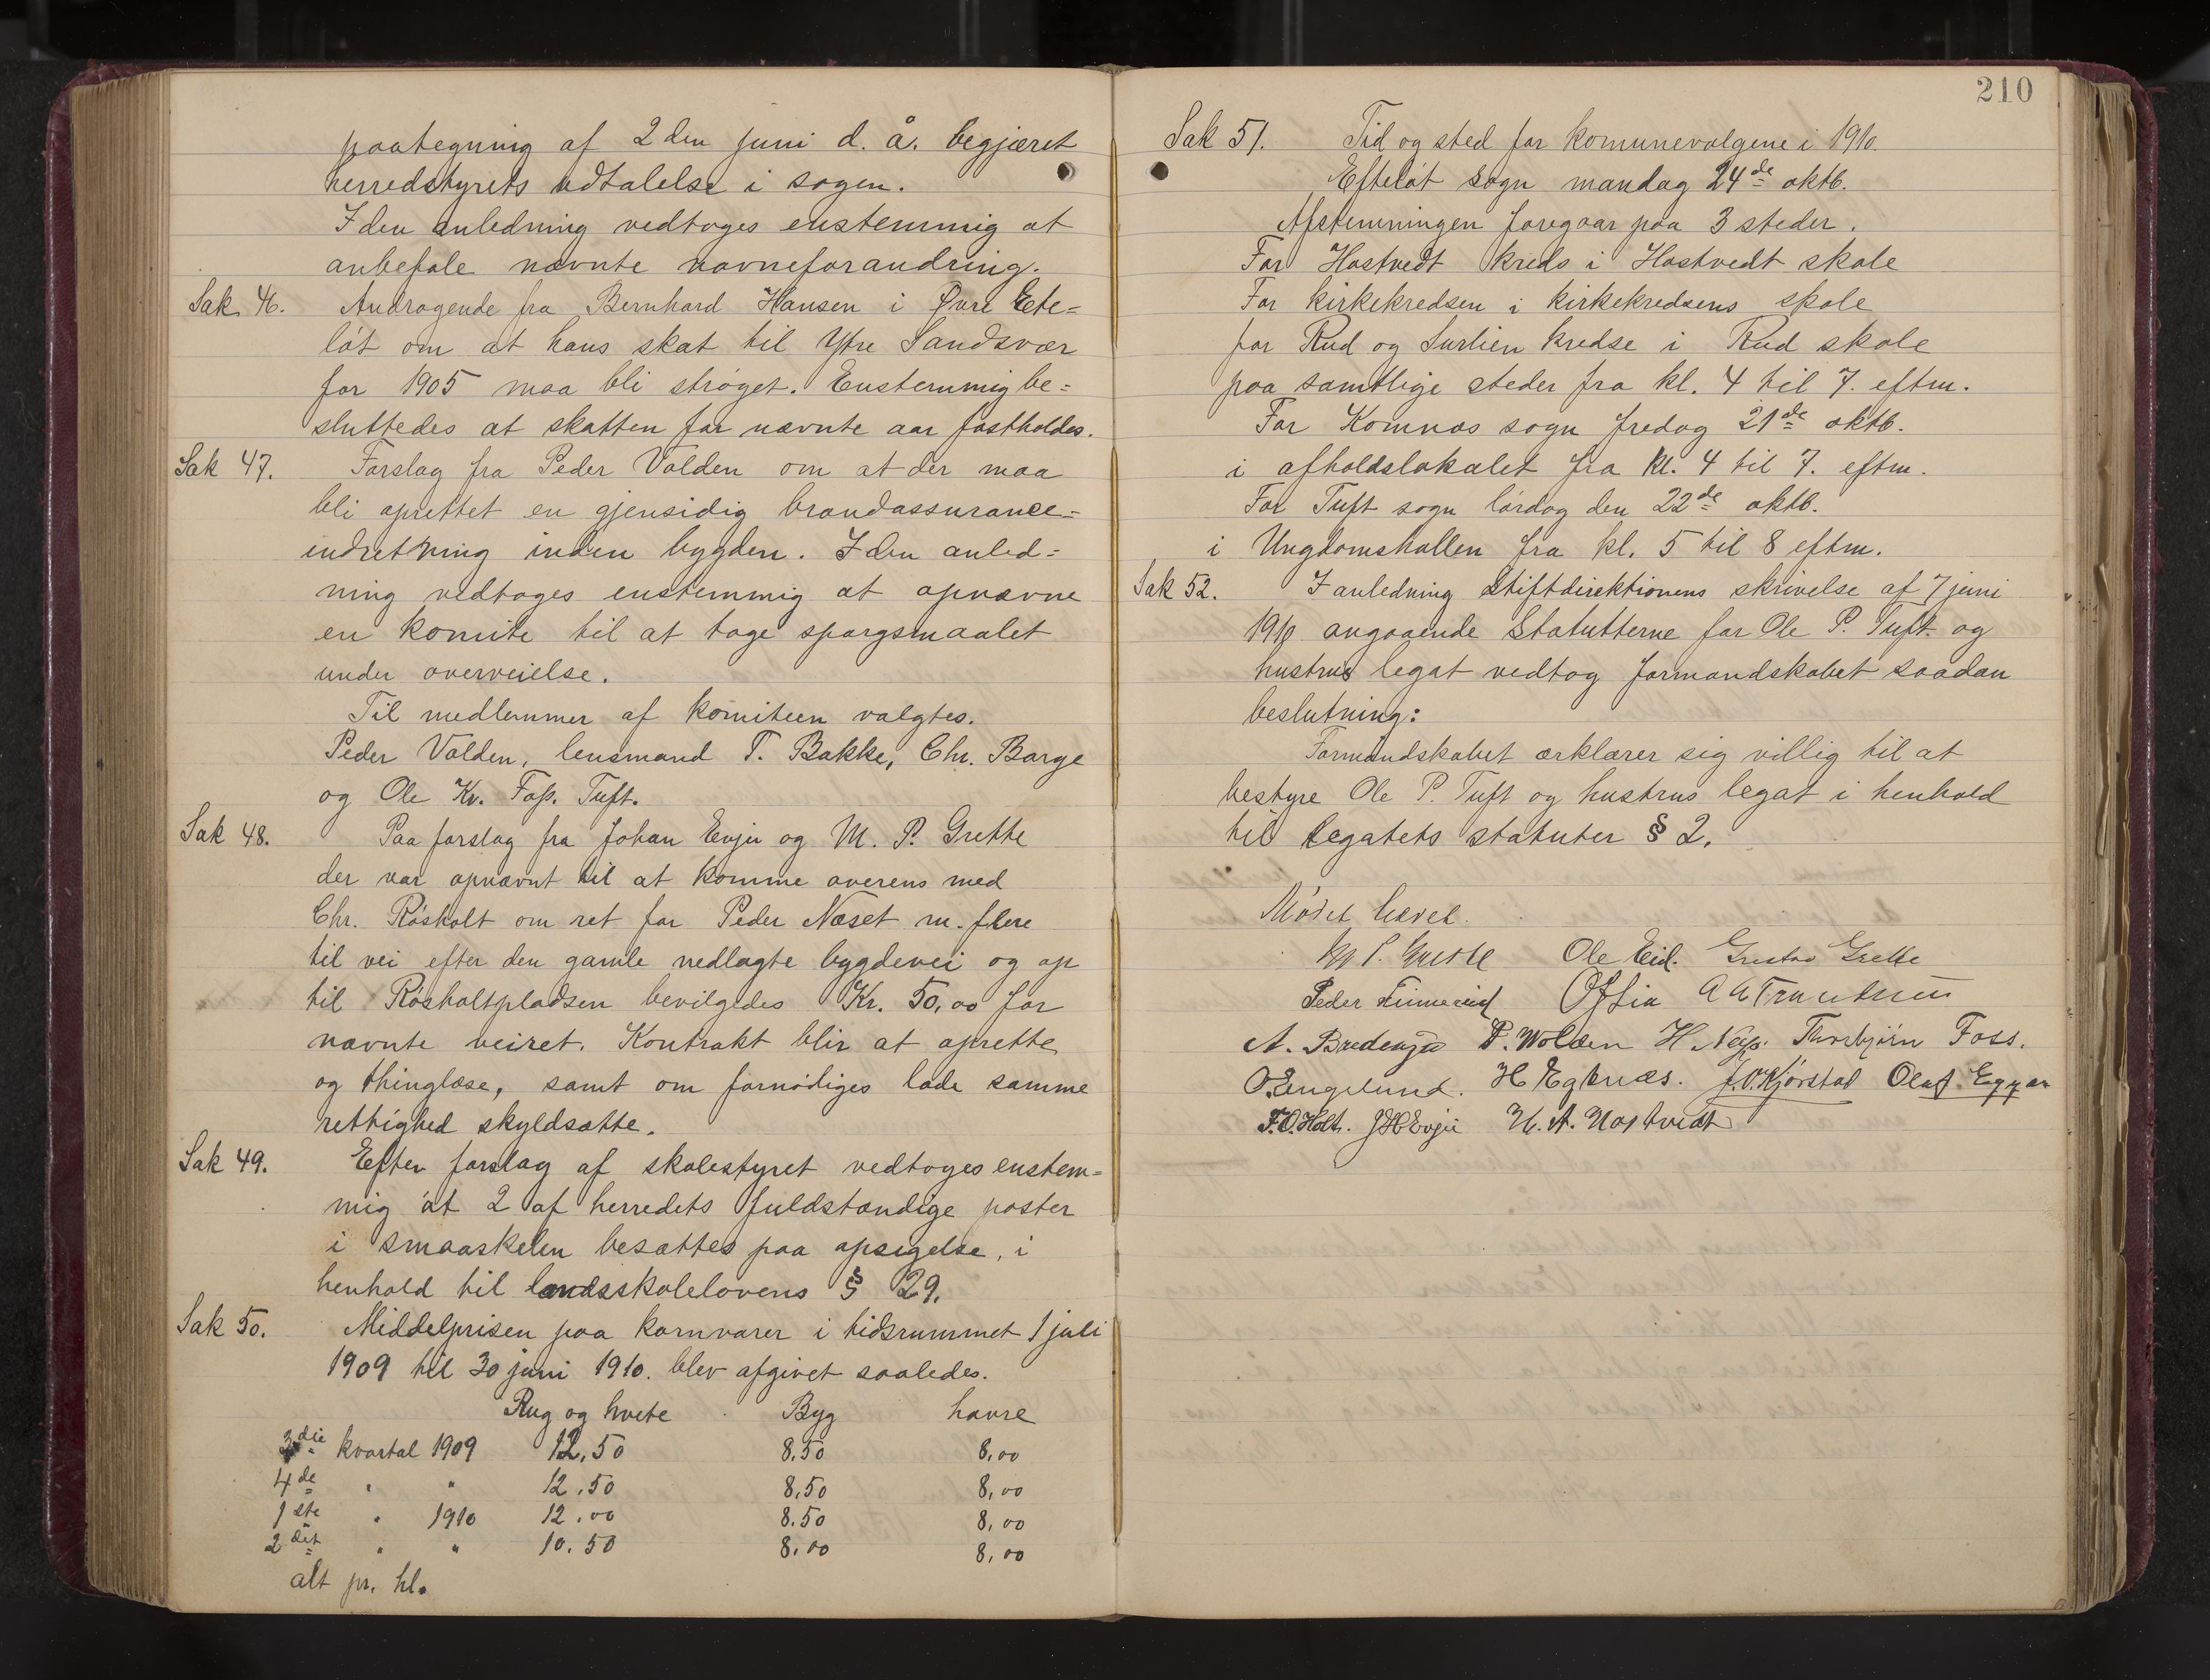 paategning af 2den juni d. å. begjæret
herredstyrets udtalelse i sagen.
I den anledning vedtoges enstemmig at
anbefale nævnte navneforandring.
Sak 46. Andragende fra Bernhard Hansen i Øvre Efte=
løt om at hans skat til Ytre Sandsvær
for 1905 maa bli strøget. Enstemmig be=
sluttedes at skatten for nævnte aar fastholdes.
Sak 47. Forslag fra Peder Volden om at der maa
bli oprettet en gjensidig brandassurance=
indretning inden bygden. I den anled=
ning vedtoges enstemmig at opnævne
en komite til at tage spørgsmaalet
under overveielse.
Til medlemmer af komiteen valgtes.
Peder Volden, lensmand T. Bakke, Chr. Barge
og Ole Kr. Fos. Tuft.
Sak 48. Paa forslag fra Johan Evju og M. P. Grette
der var opnævnt til at komme overens med
Chr. Røsholt om ret for Peder Næset m. flere
til vei efter den gamle nedlagte bygdevei og op
til Røsholtpladsen bevilgedes Kr. 50,00 for
nævnte veiret. Kontrakt blir at oprette
og thinglæse, samt om fornødiges lade samme
rettighed skyldsætte.
Sak 49. Efter forslag af skolestyret vedtoges enstem=
mig at 2 af herredets fuldstændige poster
i smaaskolen besættes paa opsigelse, i
henhold til landsskolelovens § 29.
Sak 50. Middelprisen paa kornvarer i tidsrummet 1 juli
1909 til 30 juni 1910. blev afgivet saaledes.
Rug og hvete Byg havre
3die kvartal 1909 12,50 8.50 8,00
4de " " 12.50 8.50 8,00
1ste " 1910 12.00 8.50 8,00
2det " " 10.50 8,00 8,00
alt pr. hl.
210
Sak 51. Tid og sted for komunevalgene i 1910.
Efteløt sogn mandag 24de oktb.
Afstemningen foregaar paa 3 steder.
For Hostvedt kreds i Hostvedt skole
For kirkekredsen i kirkekredsens skole
for Rud og Surlien kredse i Rud skole
paa samtlige steder fra kl. 4 til 7. eftm.
For Komnæs sogn fredag 21de oktb.
i afholdslokalet fra kl. 4 til 7. eftm.
For Tuft sogn lørdag den 22de oktb.
i Ungdomshallen fra kl. 5 til 8 eftm.
Sak 52. I anledning Stiftdirektionens skrivelse af 7 juni
1910 angaaende Statutterne for Ole P. Tuft og
hustrus legat vedtog formandskabet saadan
beslutning:
Formandskabet erklærer sig villig til at
bestyre Ole P. Tuft og hustrus legat i henhold
til legatets statuter § 2.
Mødet hævet.
M P. Grette Ole Eid. Gustav Grette
Peder
A. P. Wolden H. Næss. Thorbjørn Foss.
O. Engelund. H Egknæs. J.O. Kjørstad Olaf Eggar
F.O. Holt. J H Evju H. A. Hostvedt